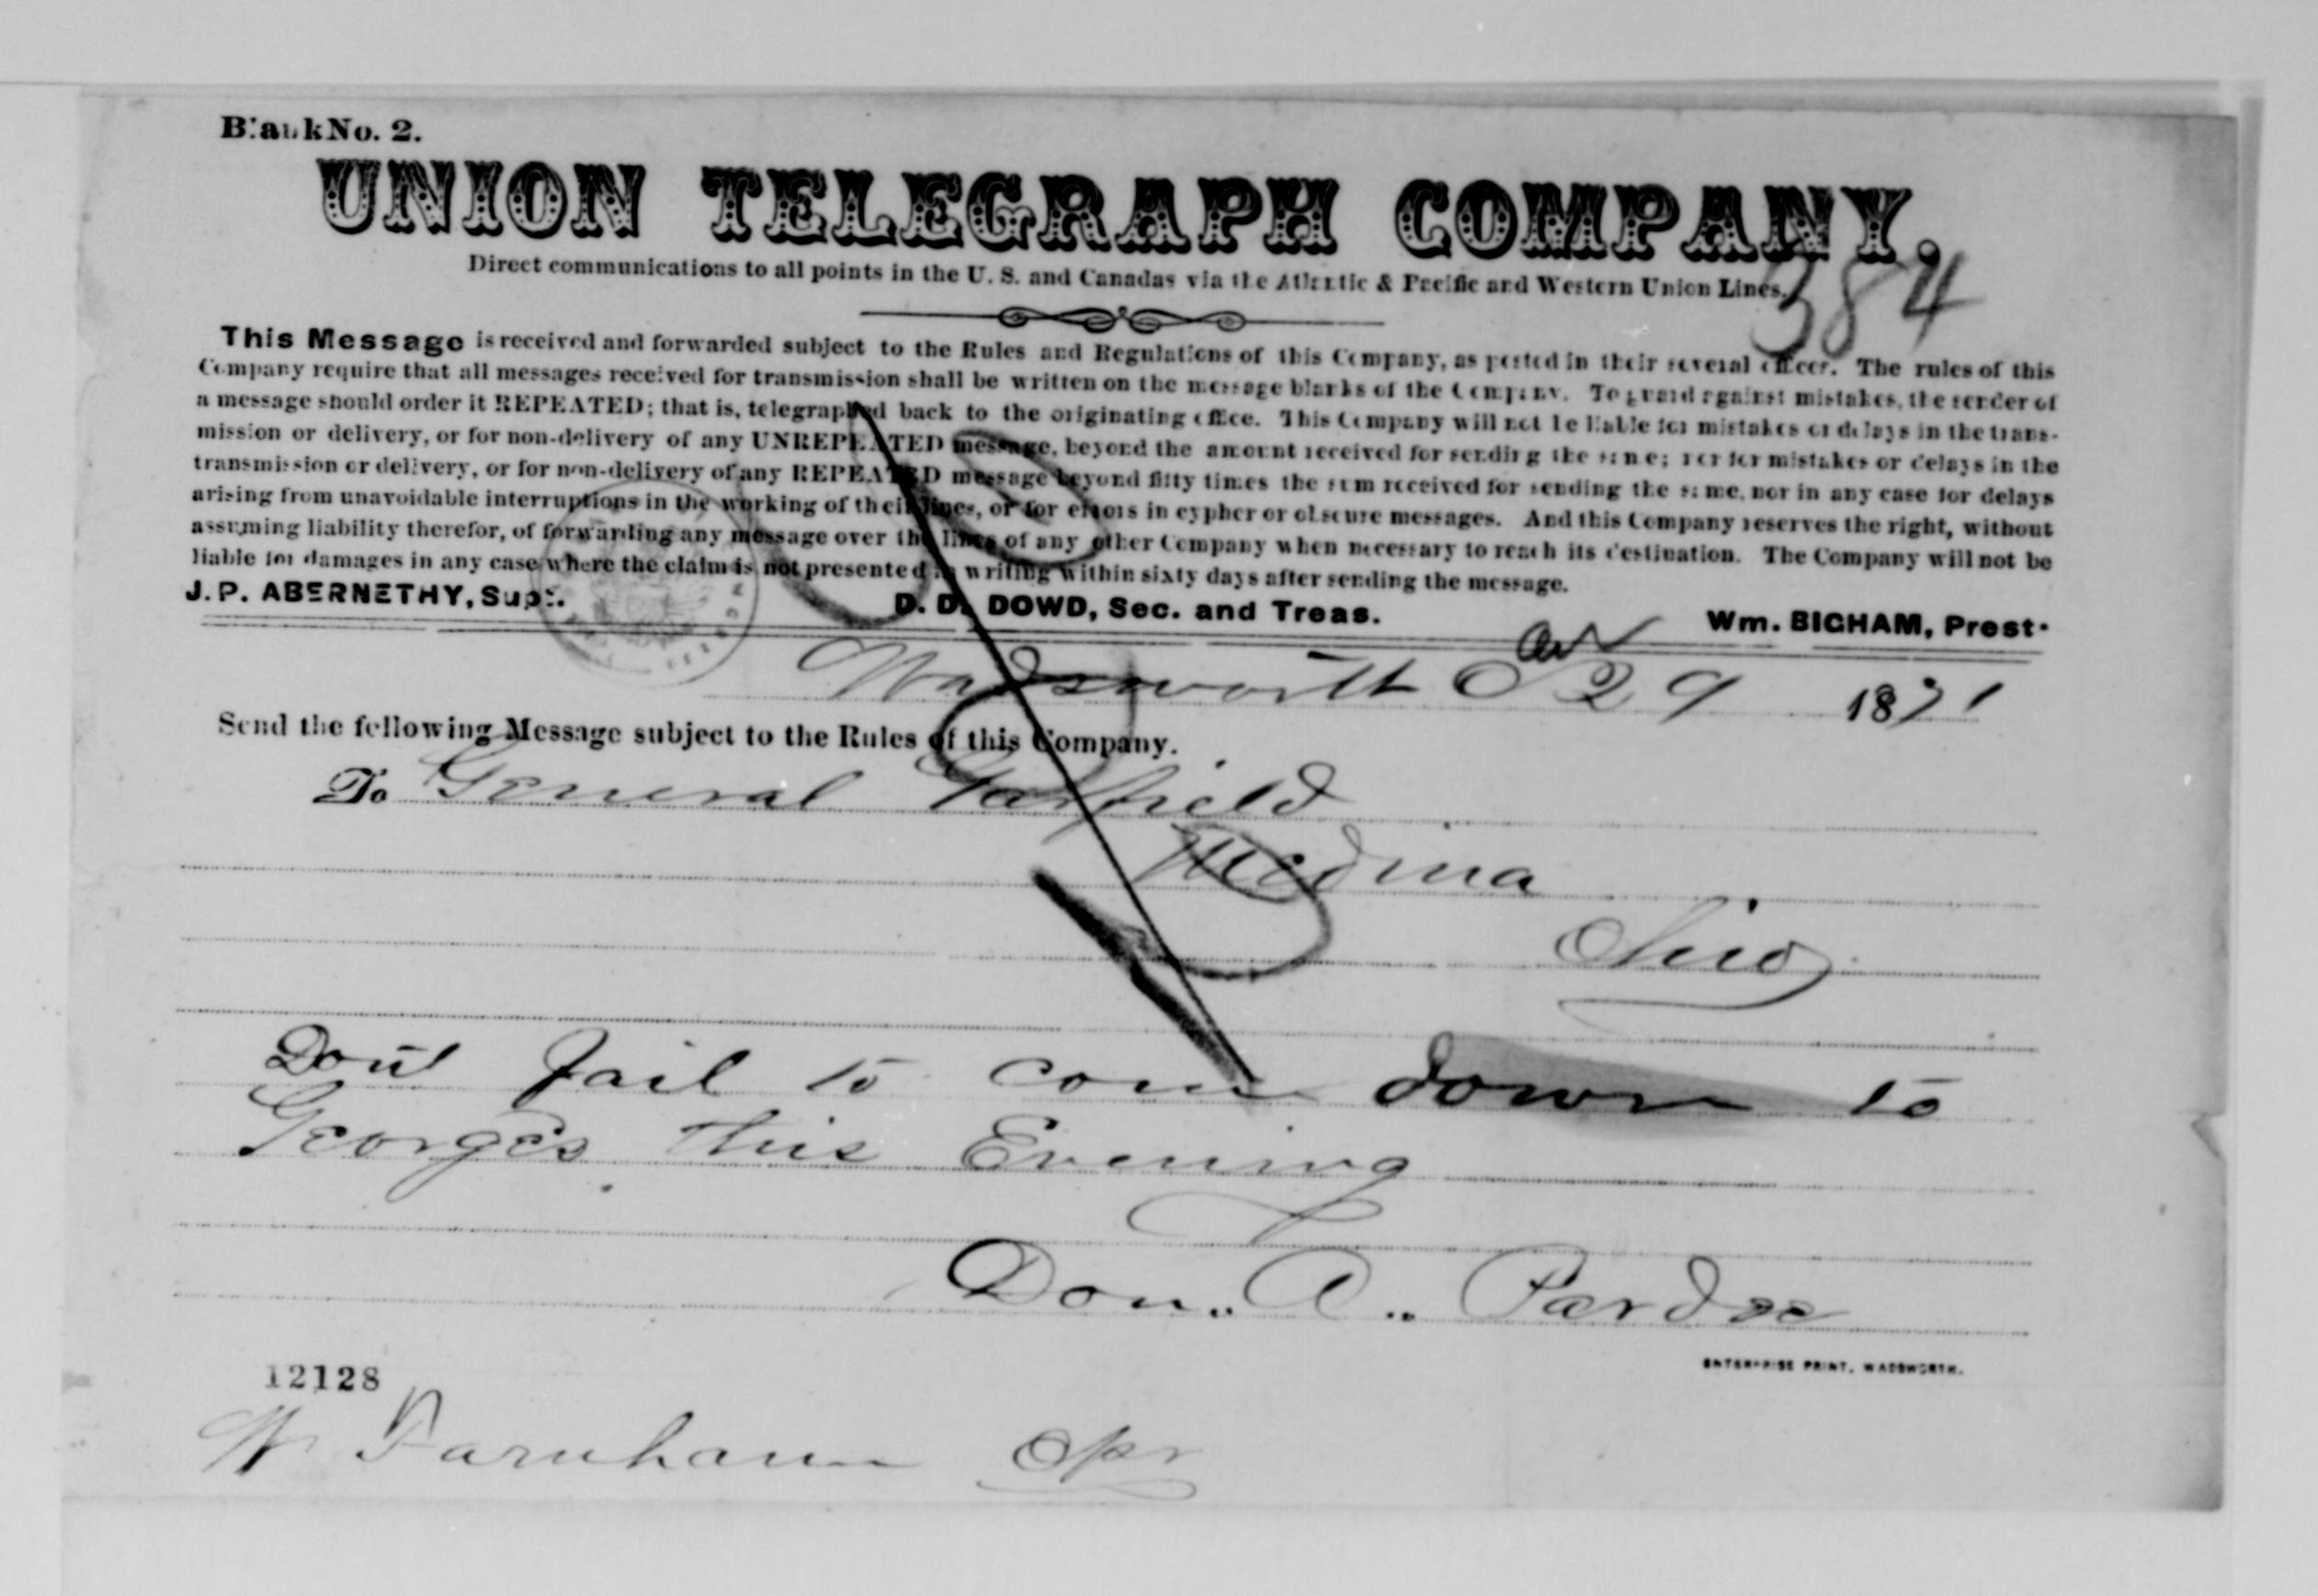 Blank No. 2.
UNION TELEGRAPH COMPANY,
Direct communications to all points in the U. S. and Canadas via the Atlantic & Pacific and Western Union Lines.
384
This Message is received and forwarded subject to the Rules and Regulations of this Company, as posted in their several offices. The rules of this
Company require that all messages received for transmission shall be written on the message blanks of the Company. To guard against mistakes, the sender of
a message should order it REPEATED; that is, telegraphed back to the originating office. This Company will not be liable for mistakes or delays in the trans-
mission or delivery, or for non-delivery of any UNREPEATED message, beyond the amount received for sending the same; nor for mistakes or delays in the
transmission or delivery, or for non-delivery of any REPEATED message beyond fifty times the sum received for sending the same, nor in any case for delays
arising from unavoidable interruptions in the working of their lines, or for errors in cypher or obscure messages. And this Company reserves the right, without
assuming liability therefor, of forwarding any message over the lines of any other Company when necessary to reach its destination. The Company will not be
liable for damages in any case where the claim is not presented in writing within sixty days after sending the message.
J. P. ABERNETHY, Supt. D. D. DOWD, Sec. and Treas. Wm. BIGHAM, Prest.
Wadsworth O 29 1871
Send the following Message subject to the Rules of this Company.
To General Garfield
Medina
Ohio
Dont fail to come down to
Georges this Evening
Don.. A.. Pardee
12128
ENTERPRISE PRINT, WADSWORTH.
W Farnham Opr